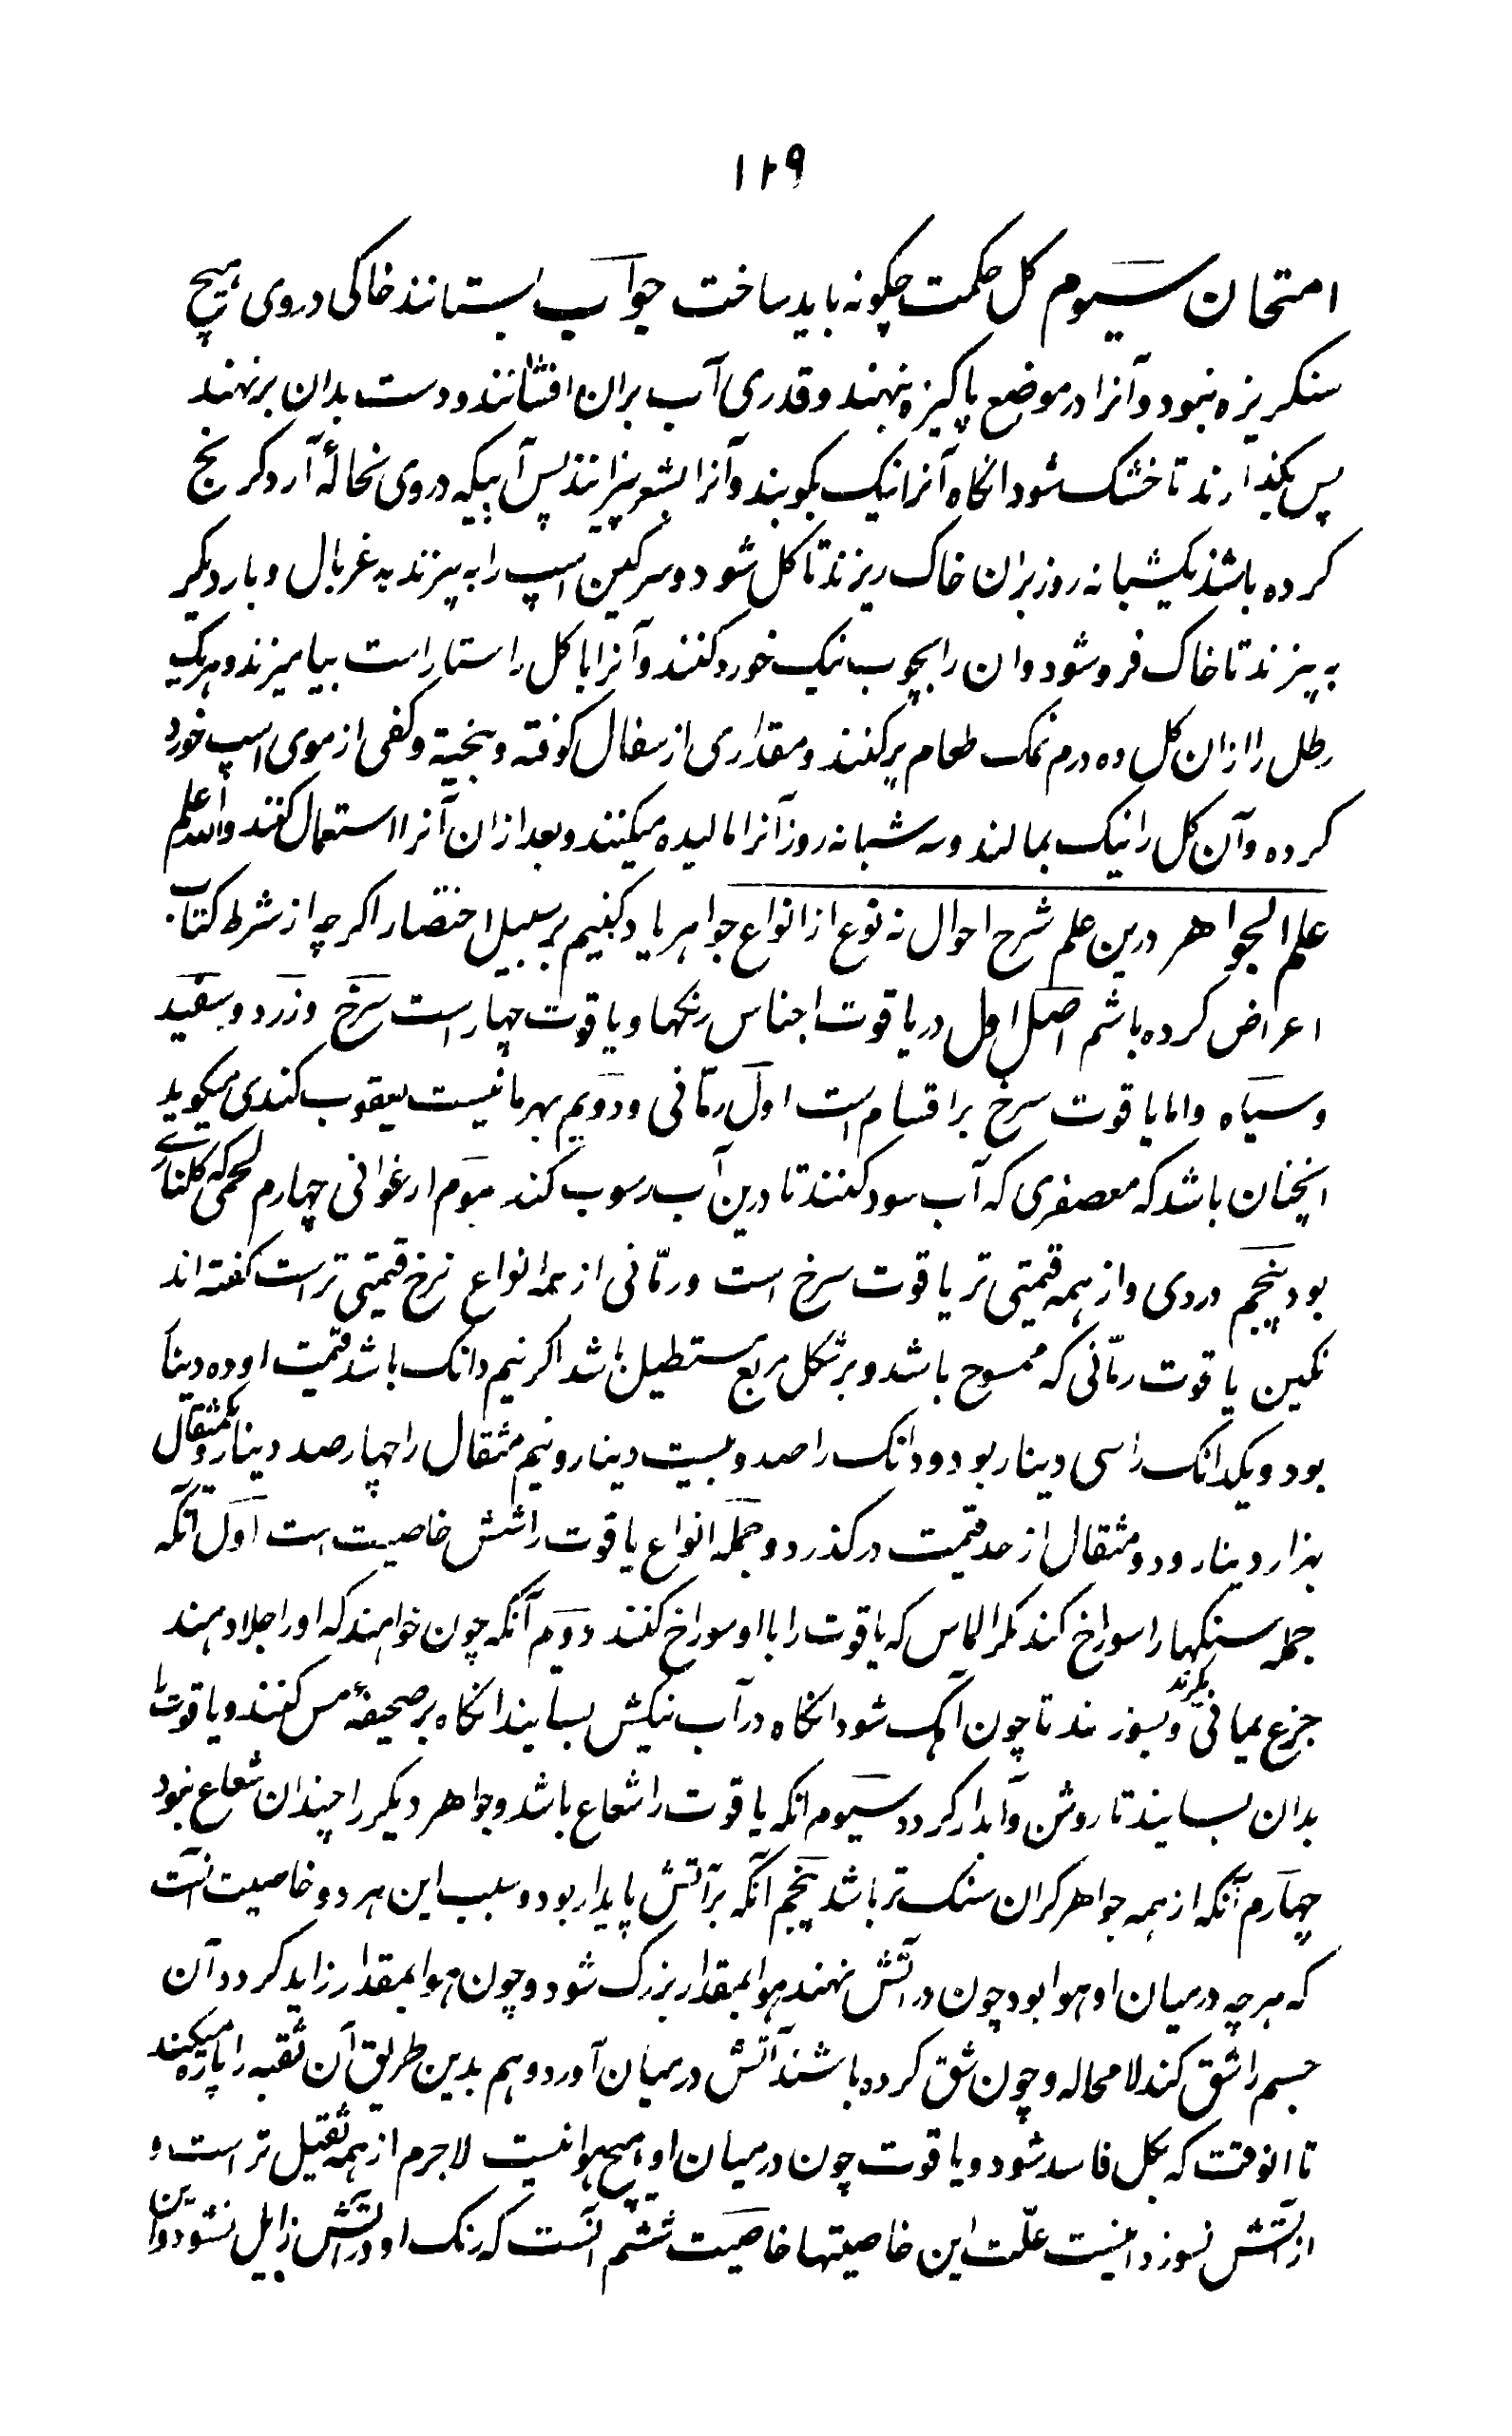 ۱۲۹
امتحان سیوم کل حکمت چکونه باید ساخت جواب بستانند خاکی در وی هیچ
سنکریزه نبود و آنرا در موضع پاکیزه بنهند و قدری آب بران افشانند و دست بدان برنهند
پس بکذارند تا خشک شود انکاه آنرا نیک بکوبند و آنرا بشعر ببیزانند پس آبیکه در وی نخالهٔ آرد کرنج
کرده باشند یکشبانه روز بران خاک ریزند تا کل شود و سرکین اسپ را به بیزند به غربال و بار دیکر
به بیزند تا خاک فرو شود وان را بچوب نیک خورد کنند و آنرا با کل راستا راست بیامیزند و هر یک
رطل را ازان کل وه درم نمک طعام برکنند و مقداری از سفال کوفته و بیخته و کفی از موی اسپ خورد
کرده و آن کل را نیک بمالند و سه شبانه روز آنرا مالیده میکنند و بعد ازان آنرا استعمال کنند والله اعلم
علم الجواهر درین علم شرح احوال نه نوع از انواع جواهر یاد کنیم بر سبیل اختصار اکرچه از شرط کتاب
اعراض کرده باشم اصل اول در یاقوت اجناس رنکها و یاقوت چهار است سرخ و زرد و سفید
و سیاه واما یاقوت سرخ بر اقسام است اول رمّانی و دویم بهرمانیست یعقوب کندی میکوید
انچنان باشد که معصفری که آب سود کنند تا درین آب رسوب کند سوم ارغوانی چهارم لحمی که کلناری
بود پنجم وردی و از همه قیمتی تر یاقوت سرخ است و رمّانی از همه انواع نرخ قیمتی تر است کفته اند
نکین یاقوت رمّانی که ممسوح باشد و بر شکل مربع مستطیل باشد اکر نیم دانک باشد قیمت او ده دینار
بود و یکدانک را سی دینار بود و دو دانک را صد و بیست دینار و نیم مثقال را چهارصد دینار و یکمثقال
بهزار دینار و دو مثقال از حد قیمت درکذرد و جمله انواع یاقوت را شش خاصیت است اول آنکه
جمله سنکها را سوراخ کند مکر الماس که یاقوت را با او سوراخ کنند دوم آنکه چون خواهند که او را جلا دهند
جزع یمانی بکیرند و بسوزند تا چون آهک شود انکاه در آب نیکش بسایند انکاه بر صحیفهٔ مس کنند و یاقوت را
بدان بسایند تا روشن و آبدار کردد سیوم انکه یاقوت را شعاع باشد و جواهر دیکر را چندان شعاع نبود
چهارم آنکه از همه جواهر کران سنک تر باشد پنجم آنکه بر آتش پایدار بود و سبب این هر دو خاصیت آنست
که هرچه در میان او هوا بود چون در آتش نهند هوا بمقدار بزرک شود و چون هوا بمقدار زاید کردد آن
جسم را شق کند لا محاله و چون شق کرده باشند آتش در میان آورد و هم بدین طریق آن ثقبه را پاره میکند
تا انوقت که بکل فاسد شود و یاقوت چون در میان او هیچ هوا نیست لاجرم از همه ثقیل تر است و
از آتش نسوزد اینست علّت این خاصیتها خاصیت ششم آنست که رنک او در آتش زایل نشود و این